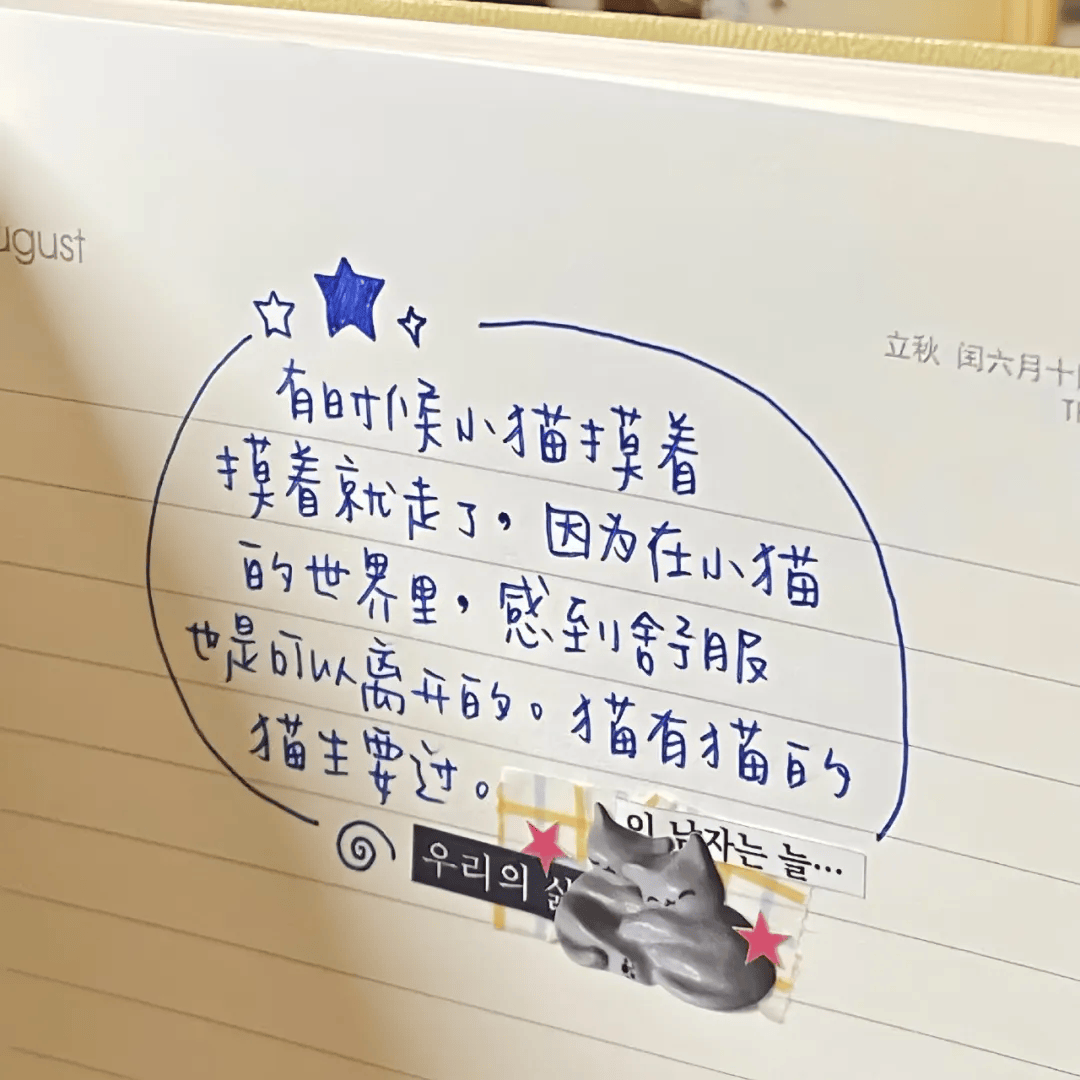 ugust
立秋 闰六月十
有时候小猫摸着
摸着就走了，因为在小猫
的世界里，感到舒服
也是可以离开的。猫有猫的
猫生要过。
우리의
자는 늘…